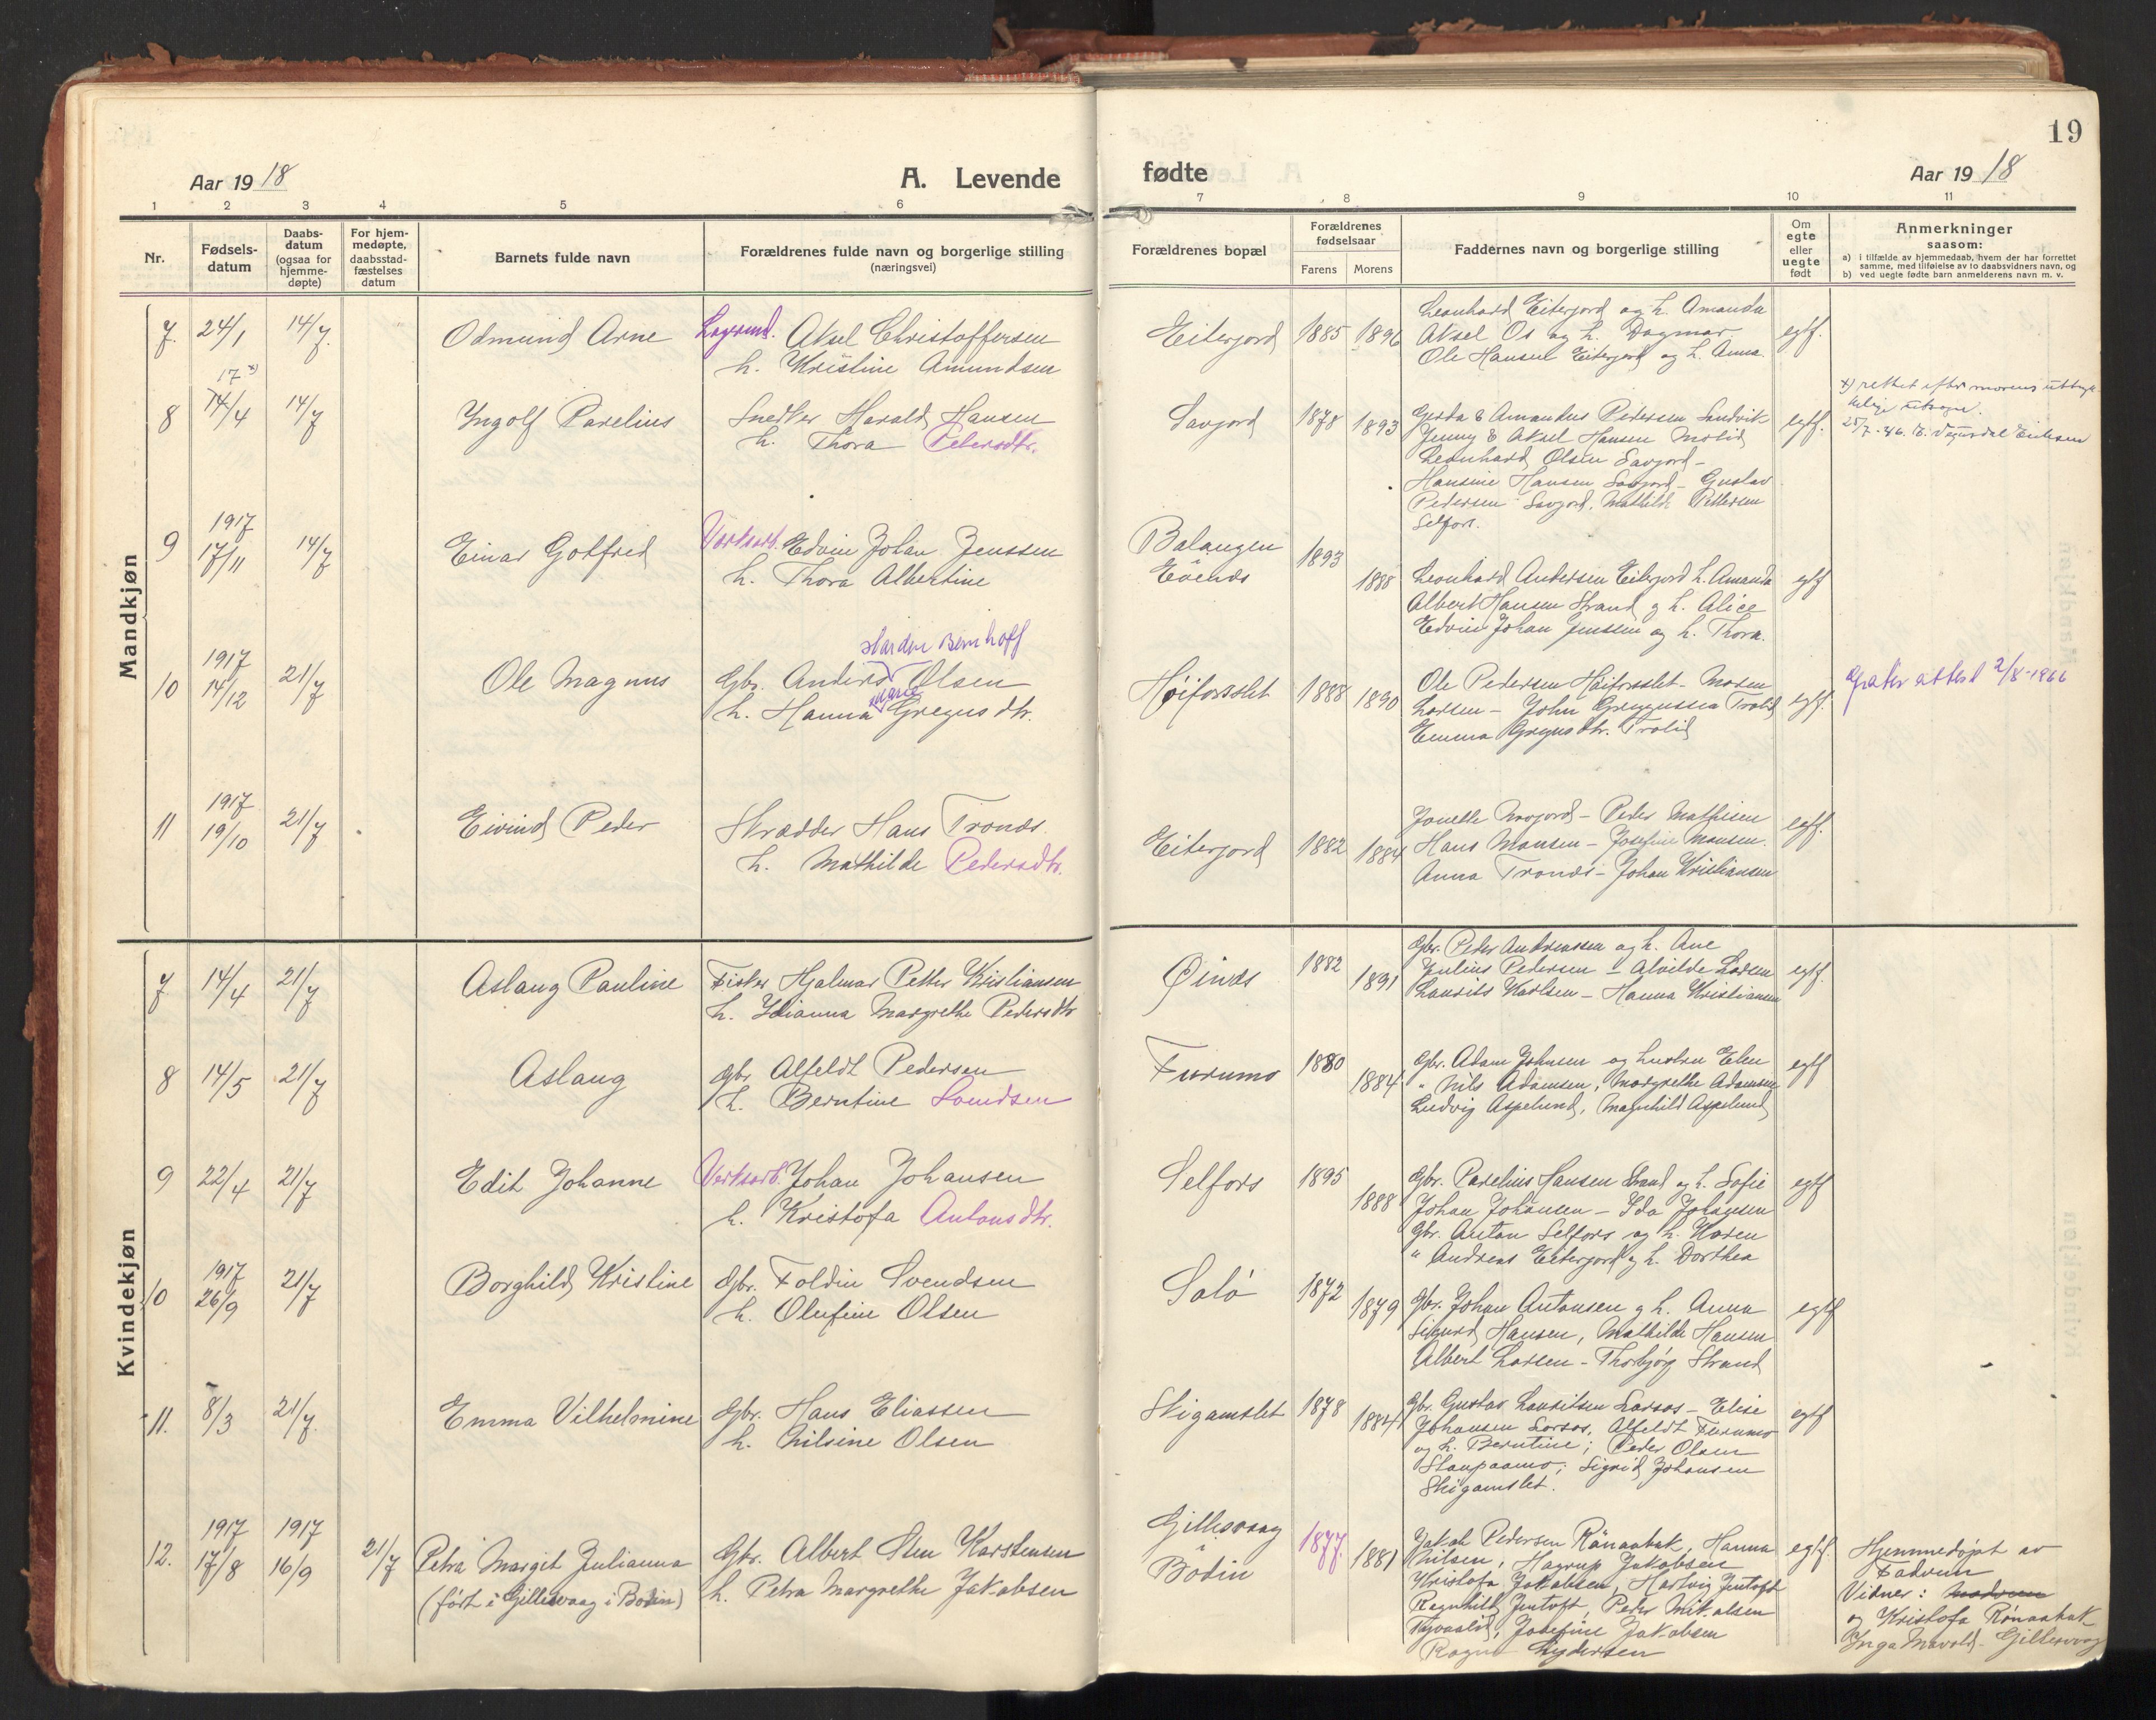 19
Aar 1918
A. Levende
fødte
Aar 1918
1 2 3 4 5 6 7 8 9 10 11
Nr.
Fødsels-
datum
Daabs-
datum
(ogsaa for
hjemme-
døpte)
For hjem-
medøpte,
daabsstad-
fæstelses
datum
Barnets fulde navn
Forældrenes fulde navn og borgerlige stilling
(næringsvei)
Forældrenes bopæl
Forældrenes
fødselsaar
Farens Morens
Faddernes navn og borgerlige stilling
Om
egte
eller
uegte
født
Anmerkninger
saasom:
a) i tilfælde av hjemmedaab, hvem der har forrettet
samme, med tilføielse av to daabsvidners navn, og
b) ved uegte fødte barn anmelderens navn m. v.
Mandkjøn
7. 24/1 14/7. Odmund Arne Aksel Christoffersen
h. Kristine Amundsen
Eiterjord 1885 1896
Leonhard Eiterjord og h. Amanda
Aksel Os og h. Dagmar
Ole Hansen Eiterjord og h. Anna.
egtf.
17 x)
8 14/4 14/7 Ingolf Parelius Snedker Harald Hansen
h. Thora Pedersdtr.
Savjord 1878 1893
Gerda & Amandus Pedersen Sandvik
Jenny & Aksel Hansen Molid
Leonhard Olsen Savjord -
Hansine Hansen Savjord - Gustav
Pedersen Savjord, Mathilde Pettersen
Selfors.
egtf.
x) rettet efter morens uttryk-
kelige utsagn.
25/7-46. E. Eriksen
1917
9 17/11 14/7 Einar Gotfred Verksarb. Edvin Johan Jenssen
h. Thora Albertine
Balangen
Evenes
1893 1888
Leonhard Andersen Eiterjord h. Amanda
Albert Hansen Strand og h. Alice
Edvin Johan Jenssen og h. Thora.
egtf
1917
10 14/12 21/7 Ole Magnus
Bernhoff
Gbr. Anders Olsen
Marie
h. Hanna Gregusdtr.
Høiforsslet 1888 1890
Ole Pedersen Høiforsslet - Mosen
Larsen - John Gregussen Trolid
Emma Gregusdtr. Trolid
egtf.
Gratis attest 2/8-1966
1917
11 19/10 21/7 Eivind Peder Skrædder Hans Tronds.
h. Mathilde Pedersdtr.
Eiterjord 1882 1884
Jonette - Peder Mathisen
Hans Monsen - Josefine Monsen.
Anna Tronds - Johan Kristiansen
egtf.
Kvindekjøn
7 14/4 21/7 Aslaug Pauline Fisker Hjalmar Petter Kristiansen
h. Margrethe Pedersdtr
Øines 1882 1891
Gbr. Peder Andreassen og h. Ane
Julius Pedersen - Alvilde Larsen
Laurits Karlsen - Hanna Kristiansen
egtf.
8 14/5 21/7 Aslaug gbr. Alfeldt Pedersen
h. Berntine Svendsen
Furumo 1880 1884
Gbr. Adam Johnsen og hustru Elen
" Nils Adamsen, Margrethe Adamsen
Ludvig Aspelund, Magnhild Aspelund
egtf
9 22/4 21/7 Edit Johanne Verksarb. Johan Johansen
h. Kristofa Antonsdtr.
Selfors 1895 1888
Gbr. Parelius Hansen Strand og h. Sofie
Johan Johansen - Ida Johansen
Gbr. Anton Selfors og h. Karen
" Andreas Eiterjord og h. Dorthea
egtf
1917
10 26/9 21/7 Borghild Kristine Gbr. Foldin Svendsen
h. Olufine Olsen
Solø 1872 1879
Gbr. Johan Antonsen og h. Anna
Sigurd Hansen, Mathilde Hansen
Albert Larsen - Thorbjørg Strand
egtf
11. 8/3 21/7. Emma Vilhelmine Gbr. Hans Eliassen
h. Nilsine Olsen
Stigamslet 1878 1884
Gbr. Gustav Lauritsen Larsos - Elise
Johansen Larsos, Alfeldt Furumo
og h. Berntine; Peder Olsen
Staupaamo; Sigrid Johansen
Stigamslet.
egtf
1917 1917
12. 17/8 16/9 21/7 Petra Margit Julianna
(født i Gillesvaag i Bodin)
Gbr. Albert Sten Karstensen
h. Petra Margrethe Jakobsen
Gillesvaag
i
Bodin
1877. 1881
Jakob Pedersen Rønaabak, Hanna
Nilsen, Hagrup Jakobsen
Kristofa Jakobsen, Hartvig Jentoft
Ragnhild Jentoft, Peder Mikalsen
Josefine Jakobsen
Ragna Lydersen
egtf.
Hjemmedøpt av
Fadrene
Vidner:
og Kristofa Rønaabak
Inga - Gillesvaag